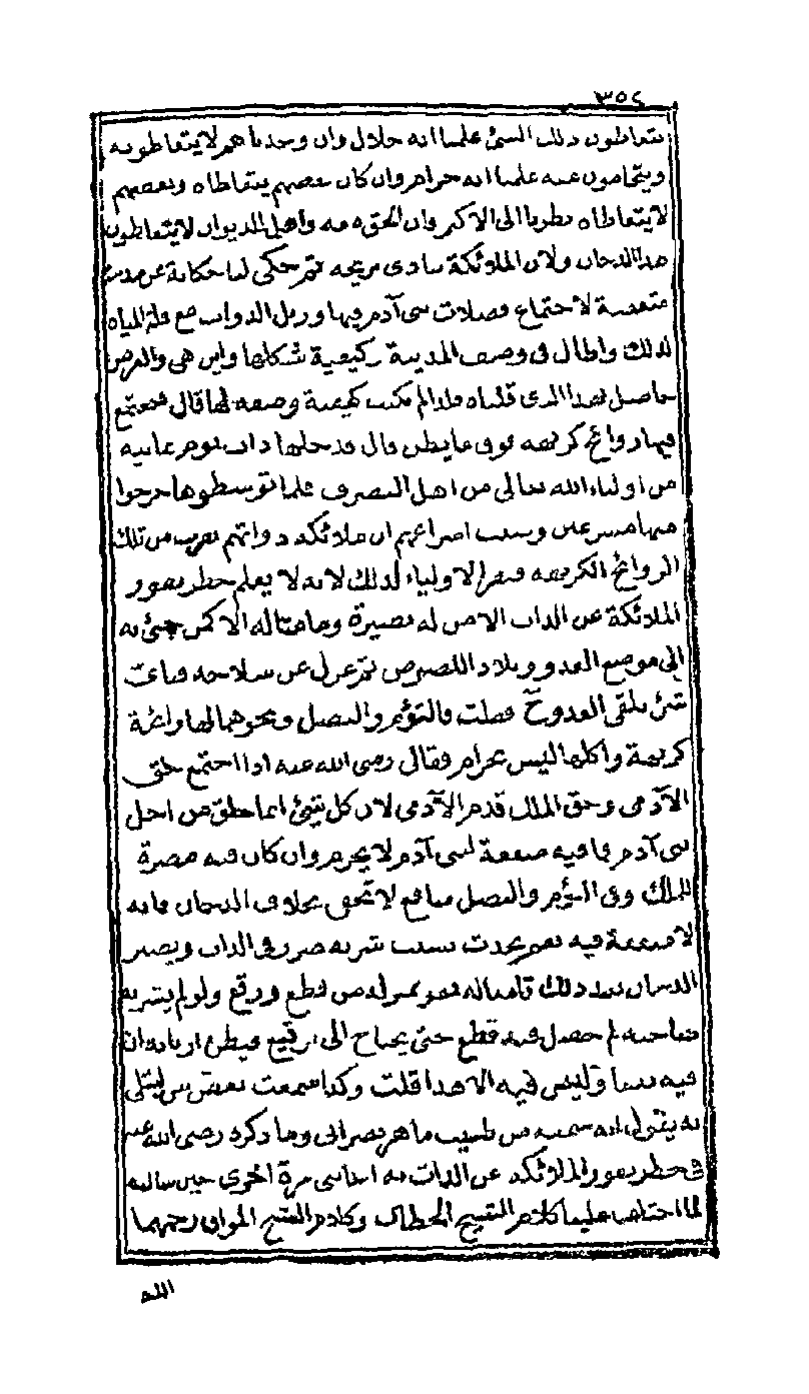 ٣٥٤
يتعاطون ذلك الشئ علمنا انه حلال وان وجدناهم لا يتعاطونه
ويتحامون عنه علمنا انه حرام وان كان بعضهم يتعاطاه وبعضهم
لا يتعاطاه نظرنا الى الاكثر فان الحق معه واهل الديوان لا يتعاطون
هذا الدخان ولان الملائكة تتاذى بريحه ثم حكى لنا حكاية عن مدينة
متعفنة لاجتماع فضلات بنى آدم فيها وزبل الدواب مع قلة المياه
لذلك واطال فى وصف المدينة وكيفية شكلها واين هى والغرض
حاصل بهذا الذى قلناه فلذا لم نكتب كيفية وصفه لها قال فتجتمع
فيها روائح كريهة فوق ما يظن قال فدخلها ذات يوم ثمانية
من اولياء الله تعالى من اهل التصرف فلما توسطوها خرجوا
منها مسرعين وسبب اسراعهم ان ملائكة ذواتهم نفرت من تلك
الروائح الكريهة ففر الاولياء لذلك لانه لا يعلم خطر نفور
الملائكة عن الذات الا من له بصيرة وما مثاله الا كمن جئ به
الى موضع العدو وبلاد اللصوص ثم عزل عن سلاحه فباى
شئ يلقى العدو ح فقلت فالثوم والبصل ونحوهما لها رائحة
كريهة واكلها ليس بحرام فقال رضى الله عنه اذا اجتمع حق
الآدمى وحق الملك قدم الآدمى لان كل شئ انما خلق من اجل
بنى آدم فما فيه منفعة لبنى آدم لا يحرم وان كان فيه مضرة
للملك وفى الثوم والبصل منافع لا تخفى بخلاف الدخان فانه
لا منفعة فيه نعم يحدث بسبب شربه ضرر فى الذات ويصير
الدخان بعد ذلك قامعا له فهو بمنزلة من قطع ورقع ولو لم يشربه
صاحبه لم يحصل فيه قطع حتى يحتاج الى ترقيع فيظن اربابه ان
فيه نفعا وليس فيه الا هذا قلت وكذا سمعت بعض من ابتلى
به يقول انه سمعه من طبيب ماهر نصرانى وما ذكره رضى الله عنه
فى خطر نفور الملائكة عن الذات به اجابنى مرة اخرى حين سالته
لما اختلف علينا كلام الشيخ الحطاب وكلام الشيخ المواق رحمهما
الله